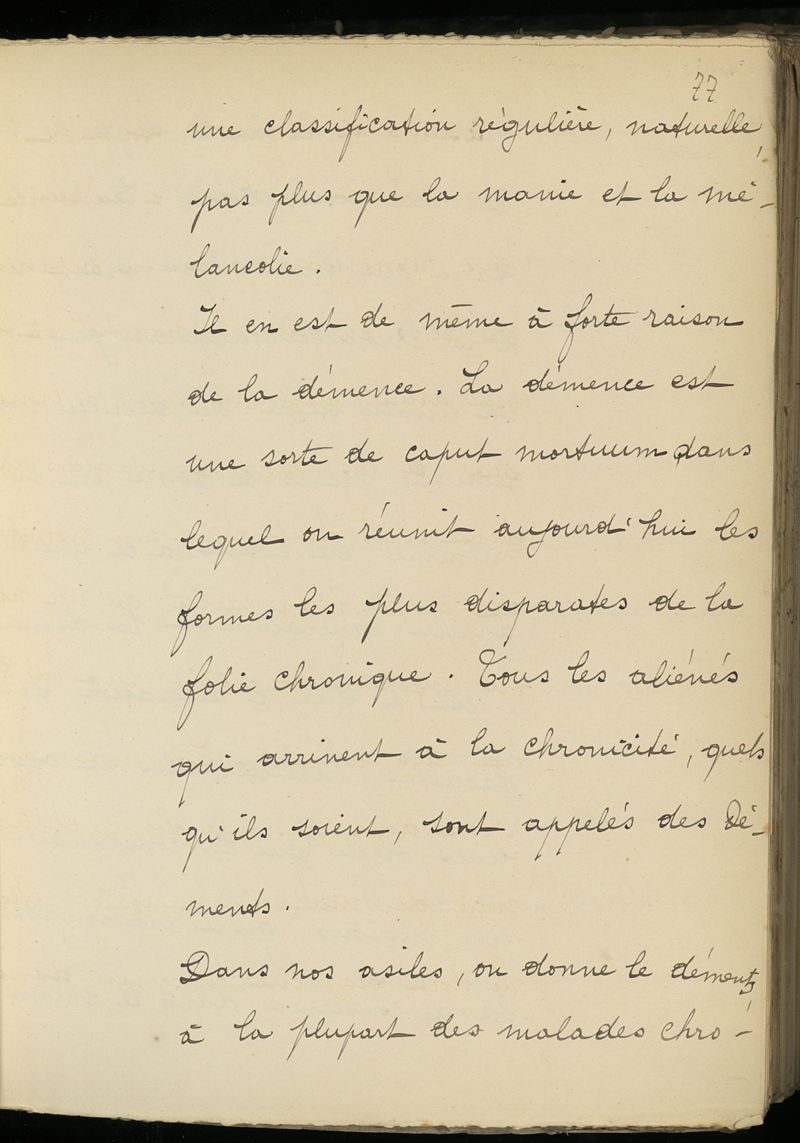 77
une classification régulière, naturelle,
pas plus que la manie et la mé-
lancolie.
Il en est de même à forte raison
de la démence. La démence est
une sorte de caput mortuum dans
lequel on réunit aujourd'hui les
formes les plus disparates de la
folie chronique. Tous les aliénés
qui arrivent à la chronicité, quels
qu'ils soient, sont appelés des Dé-
ments.
Dans nos asiles, on donne le déments
à la plupart des malades chro-